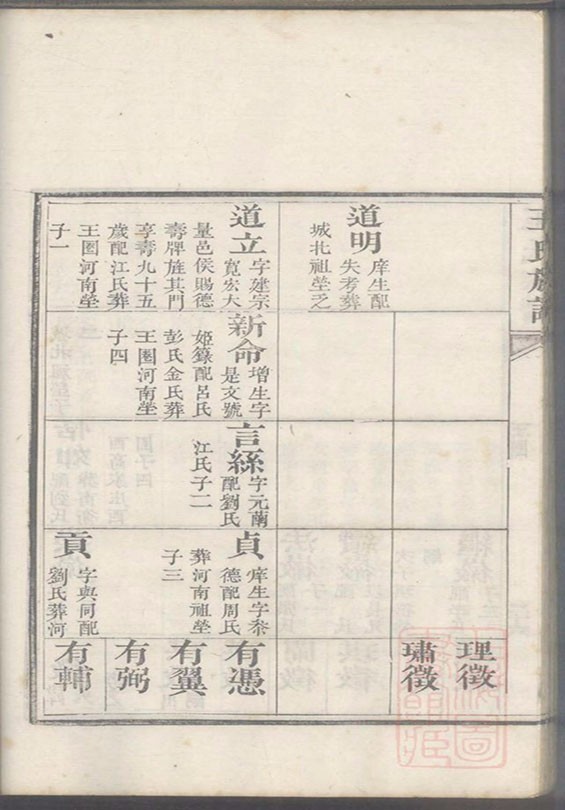 王氏族譜
道明
庠生配
失考葬
城北祖塋之
道立
字建宗
寬宏大
量邑侯賜德
壽牌旌其門
享壽九十五
歲配江氏葬
王圏河南塋
子一
新命
增生字
是文號
姬籙配呂氏
彭氏金氏葬
王圏河南塋
子四
言絲
字元蕑
配劉氏
江氏子二
貞
庠生字泰
德配周氏
葬河南祖塋
子三
貢
字與同配
劉氏葬河
理徵
璛徵
有憑
有翼
有弼
有輔